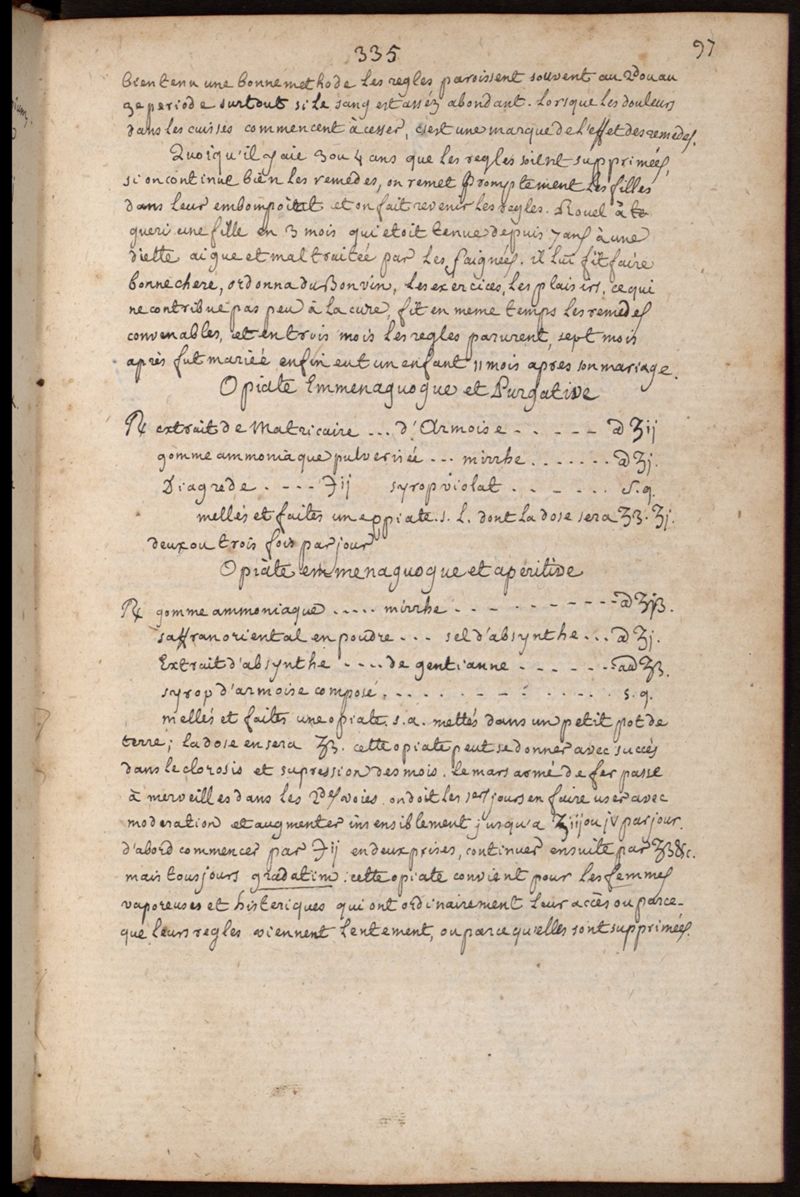 335
97
bien tenu une bonne methode les regles paroissent souvent au 2d ou au
3e periode surtout si le sang est asséz abondant. lorsque les douleurs
dans les cuisses commencent à cesser, c'est une marque de l'effet des remedes.
Quoiqu'il y aie 3 ou 4 ans que les regles soient supprimées,
si on continue bien les remedes, on remet promptement les filles
dans leur embompoint et on fait revenir les regles. Rouel à
gueri une fille en 3 mois qui etoit tenue depuis 7 ans à une
diette aigue et maltraitée par les saignées. il lui fit faire
bonne chere, ordonna du Bon vin, les exercices, les plaisirs, ce qui
ne contribue pas peu à la cure, fit en meme temps les remedes
convenables, et en trois mois les regles parurent, sept mois
après fut mariéé enfin eut un enfant 11 mois apres son mariage.
Opiate Emmenaguogue et Purgative
℞ extrait de Matricaire ... d'Armoise . . . . . . ā ʒij
gomme ammoniaque pulverisée ... mirrhe . . . . . . . ā ʒj.
Diagrede . . . . ℈ij syrop violat . . . . . . s.q.
mellés et faites une oppiate. s. l. dont la dose sera ʒß. ʒj.
deux ou trois fois par jour
Opiate emmenaguogue et apéritive
℞ gomme ammoniaque ..... mirrhe . . . . . . . . . . ā ʒjß.
saffran oriental en poudre ... sel d'absynthe ... ā ʒj.
Extrait d'absynthe .... de gentianne . . . . . . . aā ʒß.
syrop d'armoise composé. . . . . . . . . . . . s.q.
mellés et faites une opiate. s.a. mettés dans un petit pot de
terre; la dose en sera ʒß. cette opiate peut se donner avec succés
dans le clorosis et supression des mois. le mars armé de fer passe
à merveilles dans les 2des voies. on doit les 1ers jours en faire user avec
moderation et augmenter insensiblement jusqu'a ʒiij ou jv par jour.
d'abord commencer par ℈ij en deux prises, continuer ensuite par ʒß &c.
mais tousjours gradatim. cette opiate convient pour les femmes
vaporeuses et histeriques qui ont ordinairement leur accès ou parce-
que leurs regles viennent lentement, ou parce qu'elles sont supprimées.